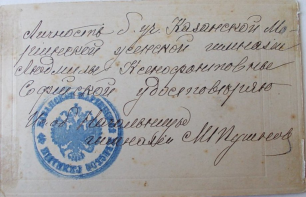 Личность б. уч. Казанской Ма-
риинской женской гимназіи
Людмилы Ксенофонтовны
Софійской удостовѣряю
И. об. Начальницы
гимназіи М Пушк